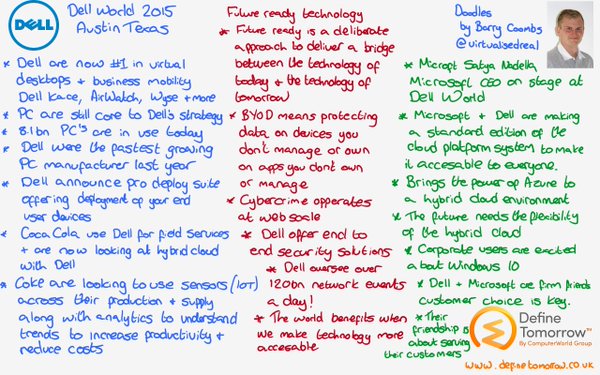 DELL
Dell World 2015
Austin Texas
* Dell are now #1 in virtual
desktops + business mobility
Dell Kace, AirWatch, Wyse + more
* PC are still core to Dell's strategy
* 8.1bn PC's are in use today
* Dell were the fastest growing
PC manufacturer last year
* Dell announce pro deploy suite
offering deployment of your end
user devices
* Coca Cola use Dell for field services
+ are now looking at hybrid cloud
with Dell
* Coke are looking to use sensors (IoT)
across their production + supply
along with analytics to understand
trends to increase productivity +
reduce costs
Future ready technology
* Future ready is a deliberate
approach to deliver a bridge
between the technology of
today + the technology of
tomorrow
* BYOD means protecting
data on devices you
don't manage or own
on apps you dont own
or manage
* Cybercrime opperates
at web scale
* Dell offer end to
end security solutions
* Dell oversee over
120bn network events
a day!
* The world benefits when
we make technology more
accesable
Doodles
by Barry Coombs
@virtualisedreal
* Microft Satya Nadella
Microsoft CEO on stage at
Dell World
* Microsoft + Dell are making
a standard edition of the
cloud platform system to make
it accesable to everyone.
* Brings the power of Azure to
a hybrid cloud environment
* The future needs the flexibility
of the hybrid cloud
* Corporate users are excited
about Windows 10
* Dell + Microsoft are firm friends
customer choice is key.
* Their
friendship is
about serving
their customers
Define
Tomorrow™
By ComputerWorld Group
www.definetomorrow.co.uk